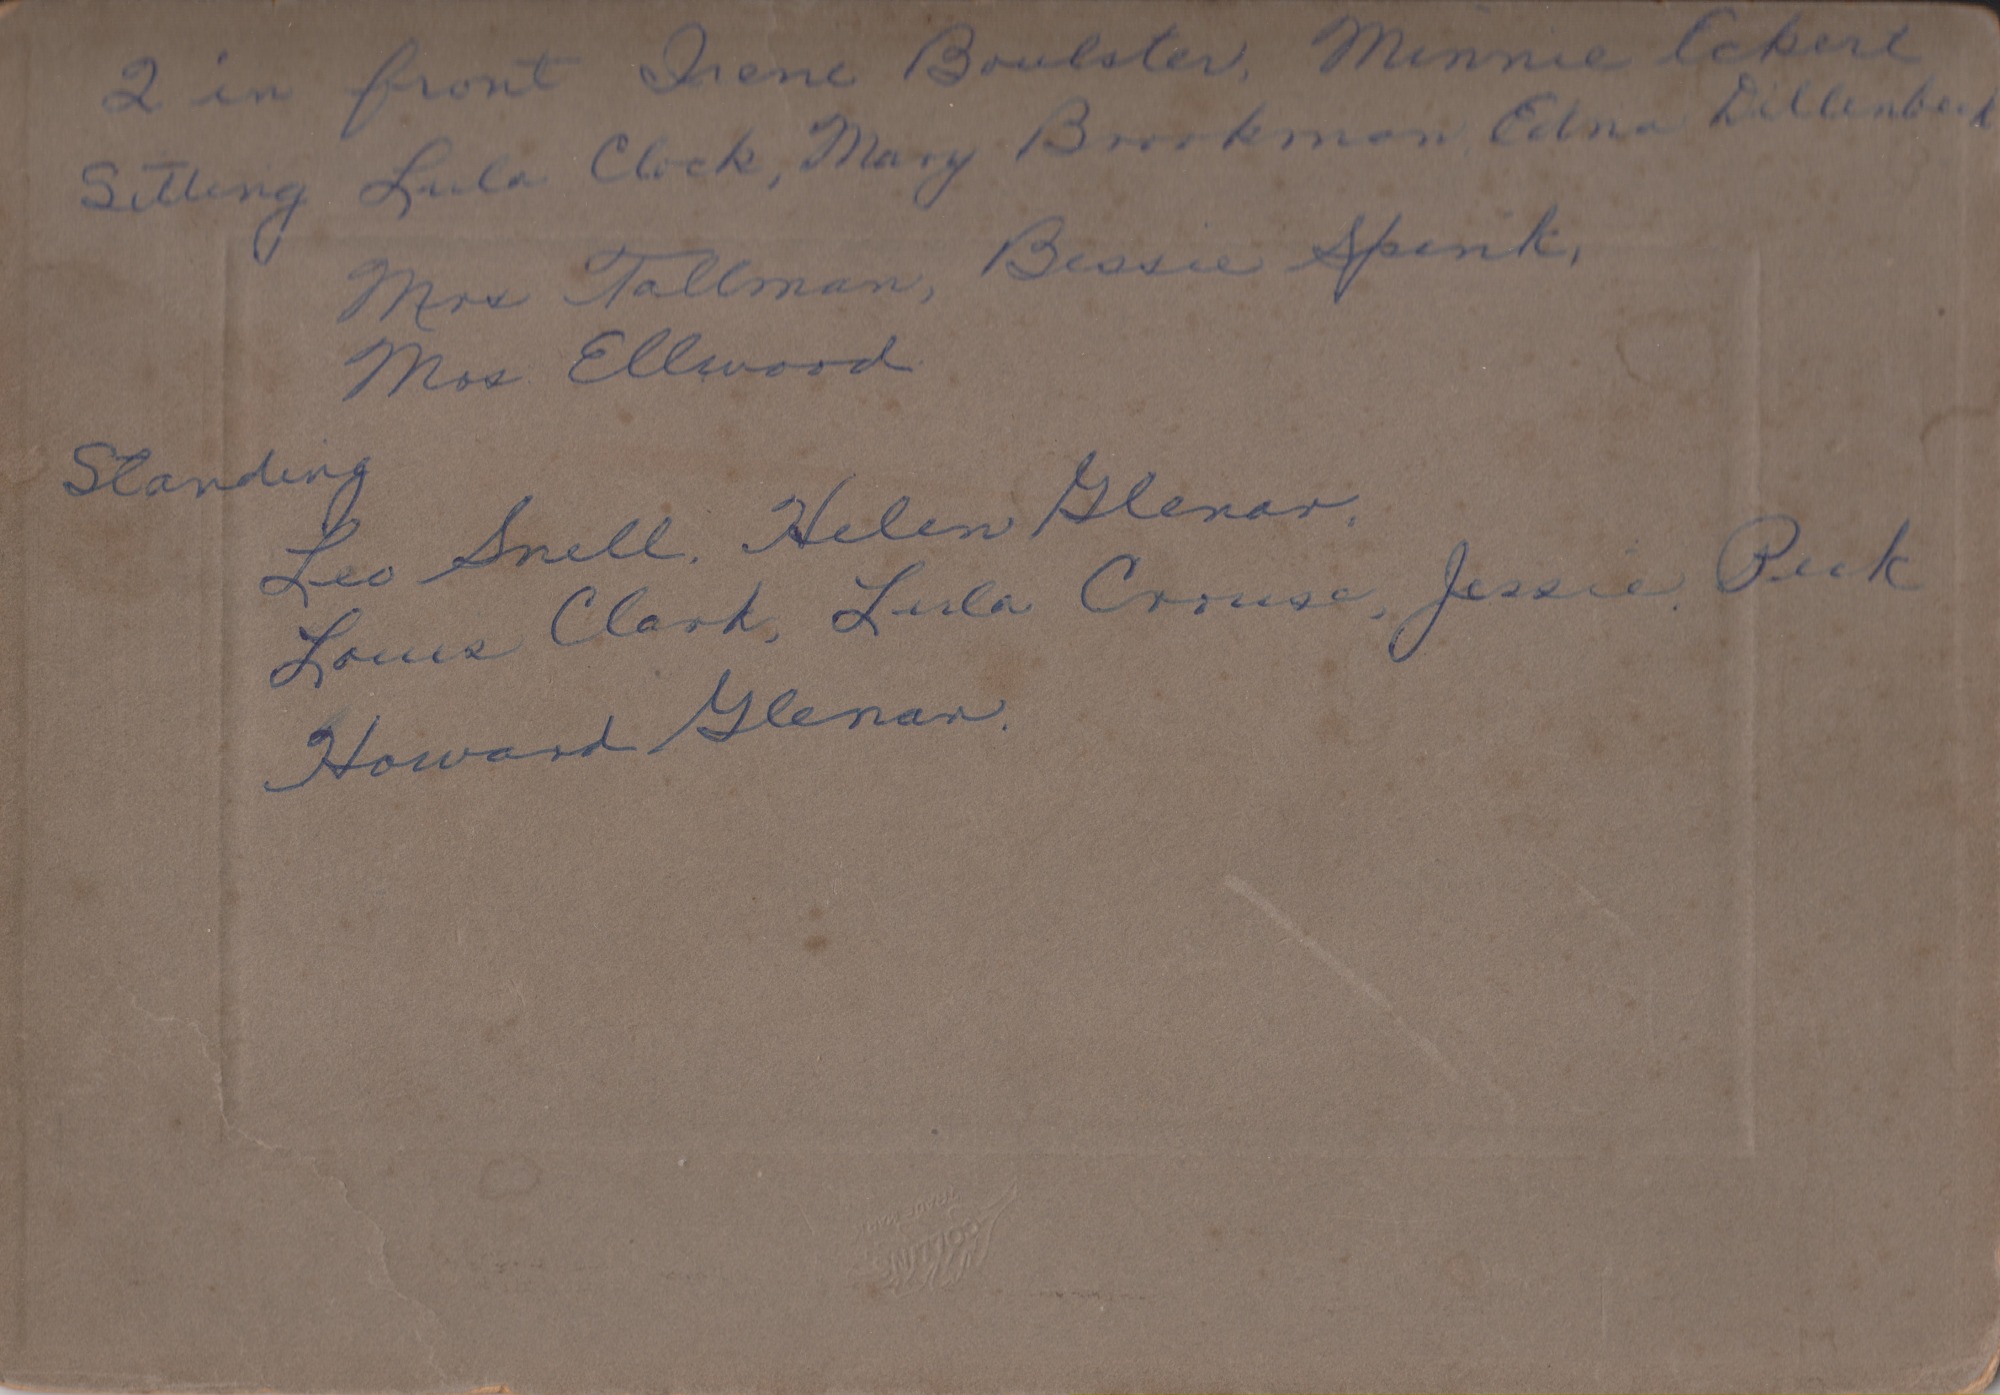 2 in front Irene Boulster, Minnie Eckert
Sitting Lula Clock, Mary Brookman Edna Dillenbeck
Mrs Tallman, Bessie Spink,
Mrs Ellwood
Standing
Leo Snell, Helen Glenar,
Louis Clark, Lula Crouse, Jessie Peck
Howard Glenar.
COLLINS